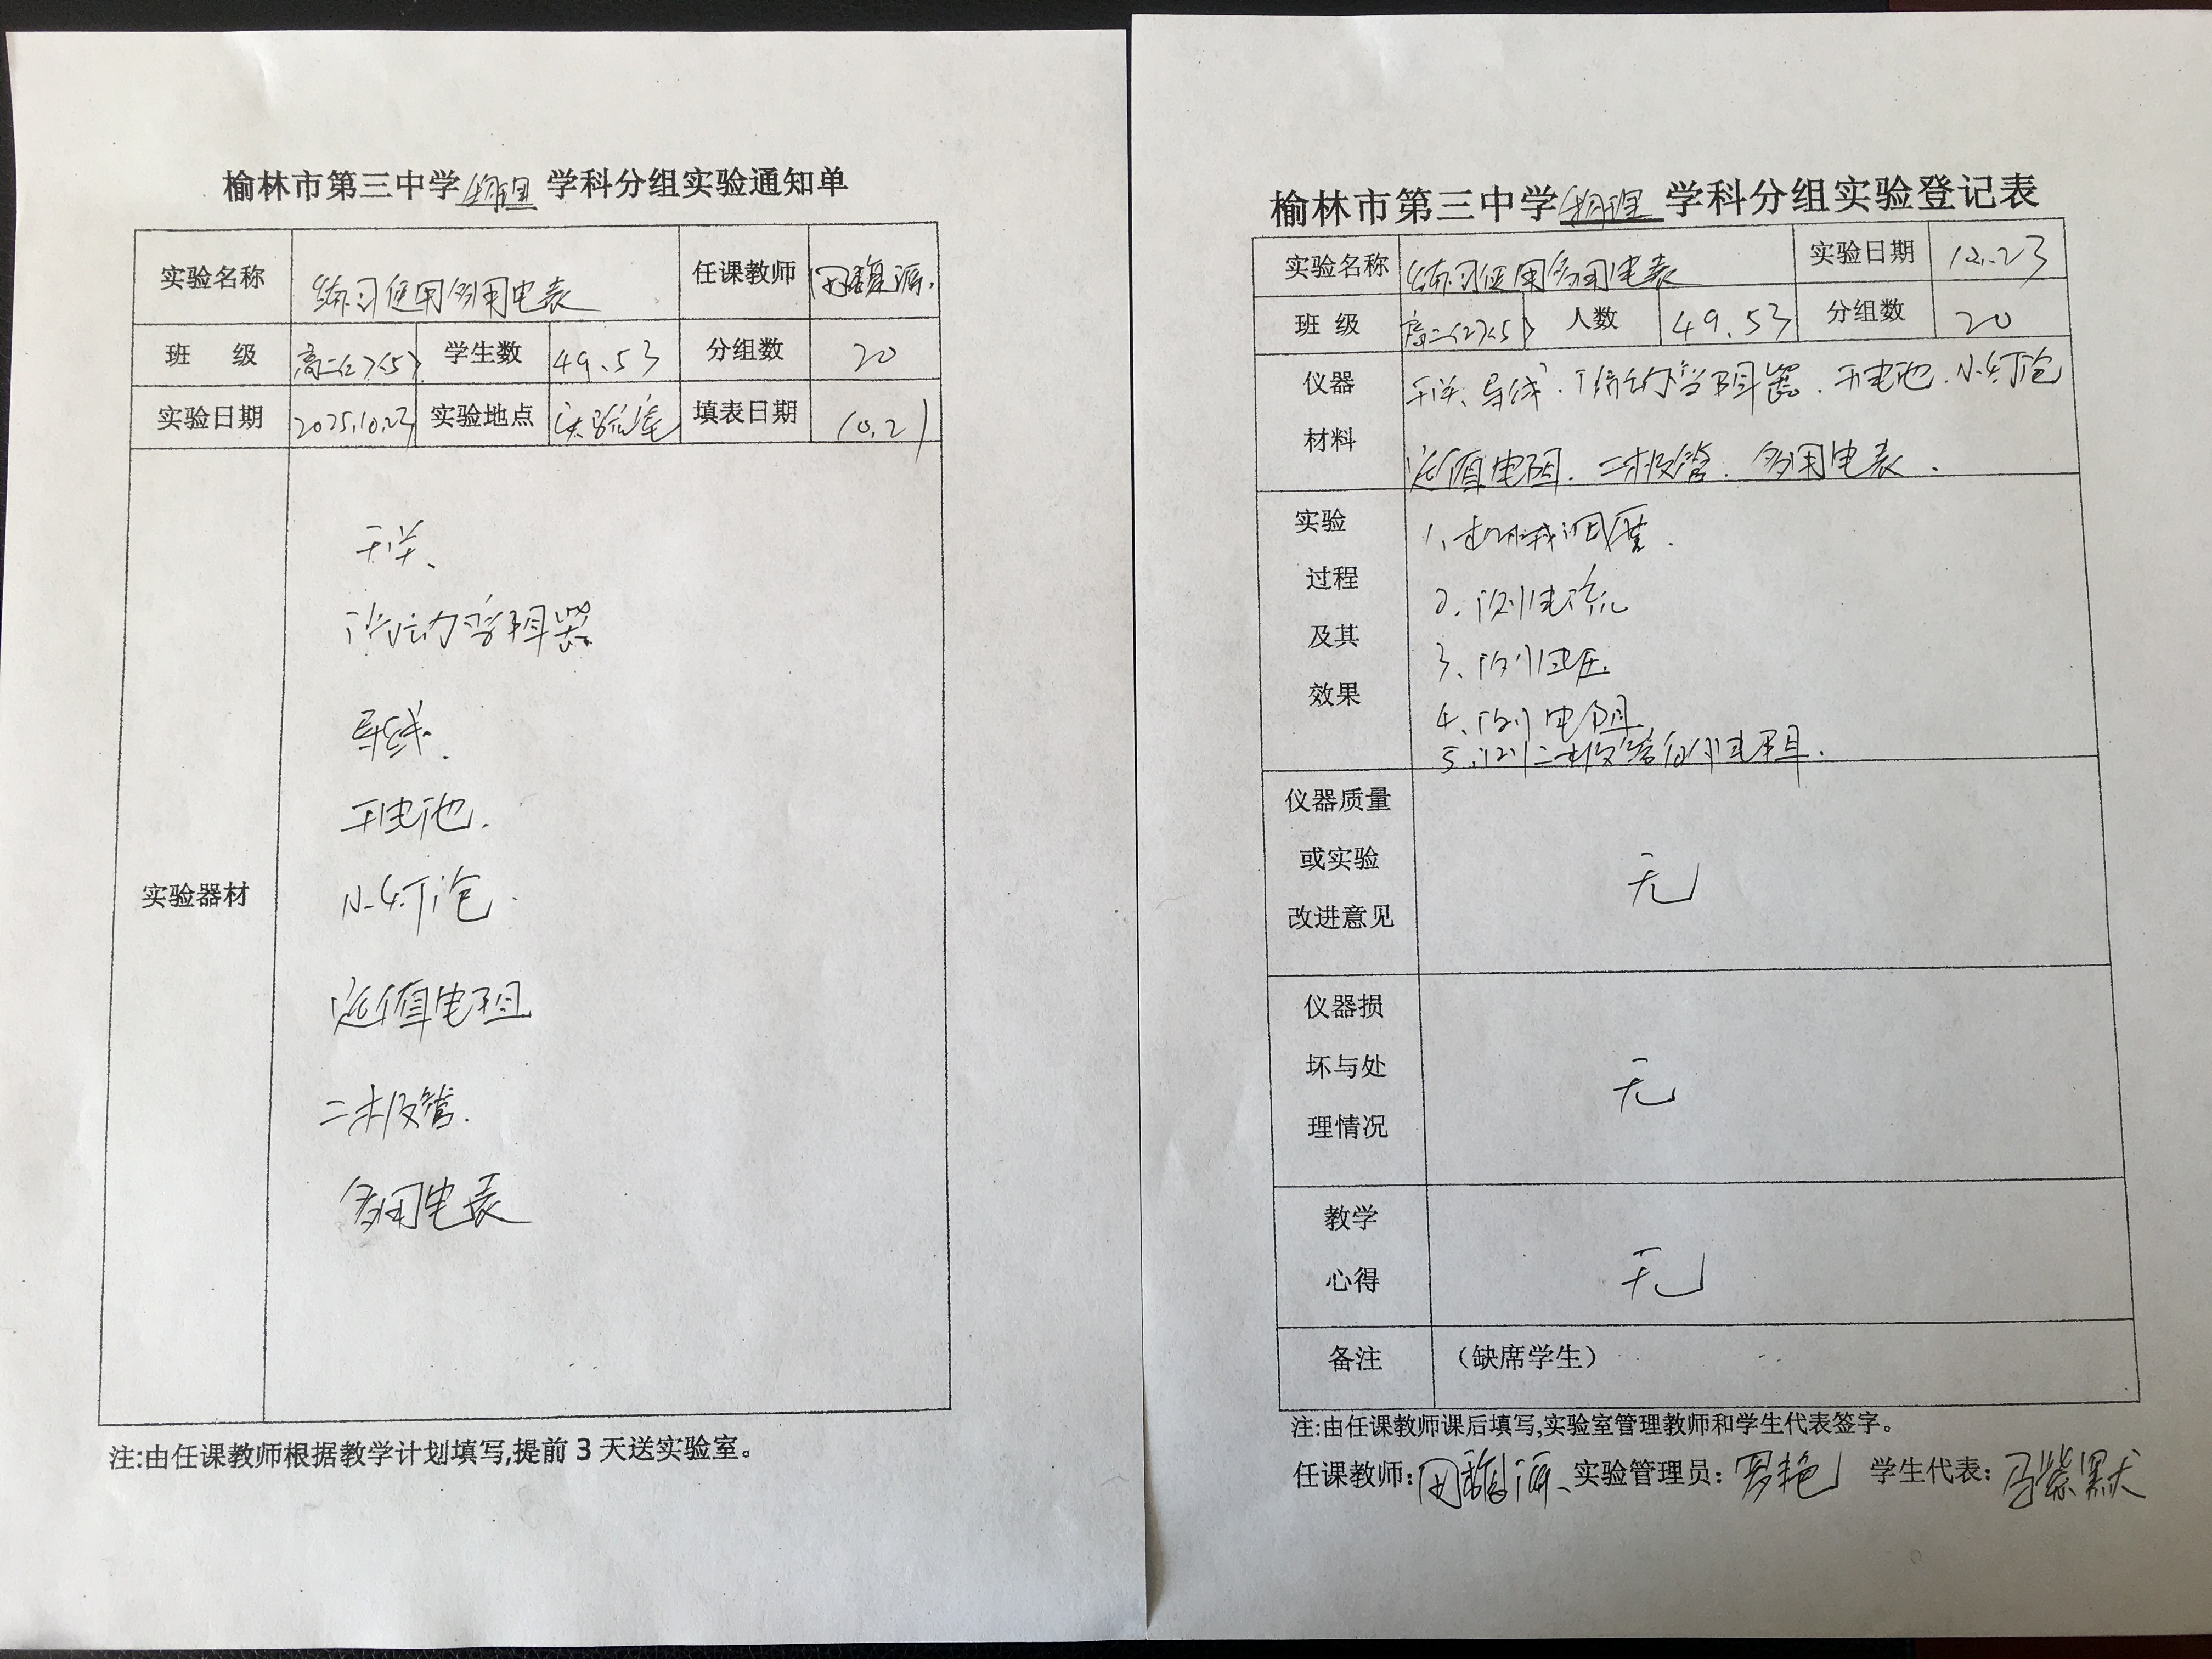 榆林市第三中学物理学科分组实验通知单
实验名称 练习使用多用电表 任课教师
班 级 高二(2)(5) 学生数 49、53 分组数 20
实验日期 2025.10.23 实验地点 实验室 填表日期 10.21
实验器材
开关、
滑动变阻器
导线、
干电池.
小灯泡.
定值电阻
二极管.
多用电表
注:由任课教师根据教学计划填写,提前 3 天送实验室。
榆林市第三中学物理学科分组实验登记表
实验名称 练习使用多用电表 实验日期
班 级 高二(2)(5) 人数 49、53 分组数 20
仪器 开关、导线、滑动变阻器、干电池、小灯泡
材料 定值电阻、二极管、多用电表.
实验 1、机械调零.
过程 2、测电流
及其 3、测电压.
效果 4、测电阻
5、测二极管 电阻.
仪器质量
或实验 无
改进意见
仪器损
坏与处 无
理情况
教学
心得 无
备注 (缺席学生)
注:由任课教师课后填写,实验室管理教师和学生代表签字。
任课教师: 实验管理员:罗艳 学生代表:马紫默